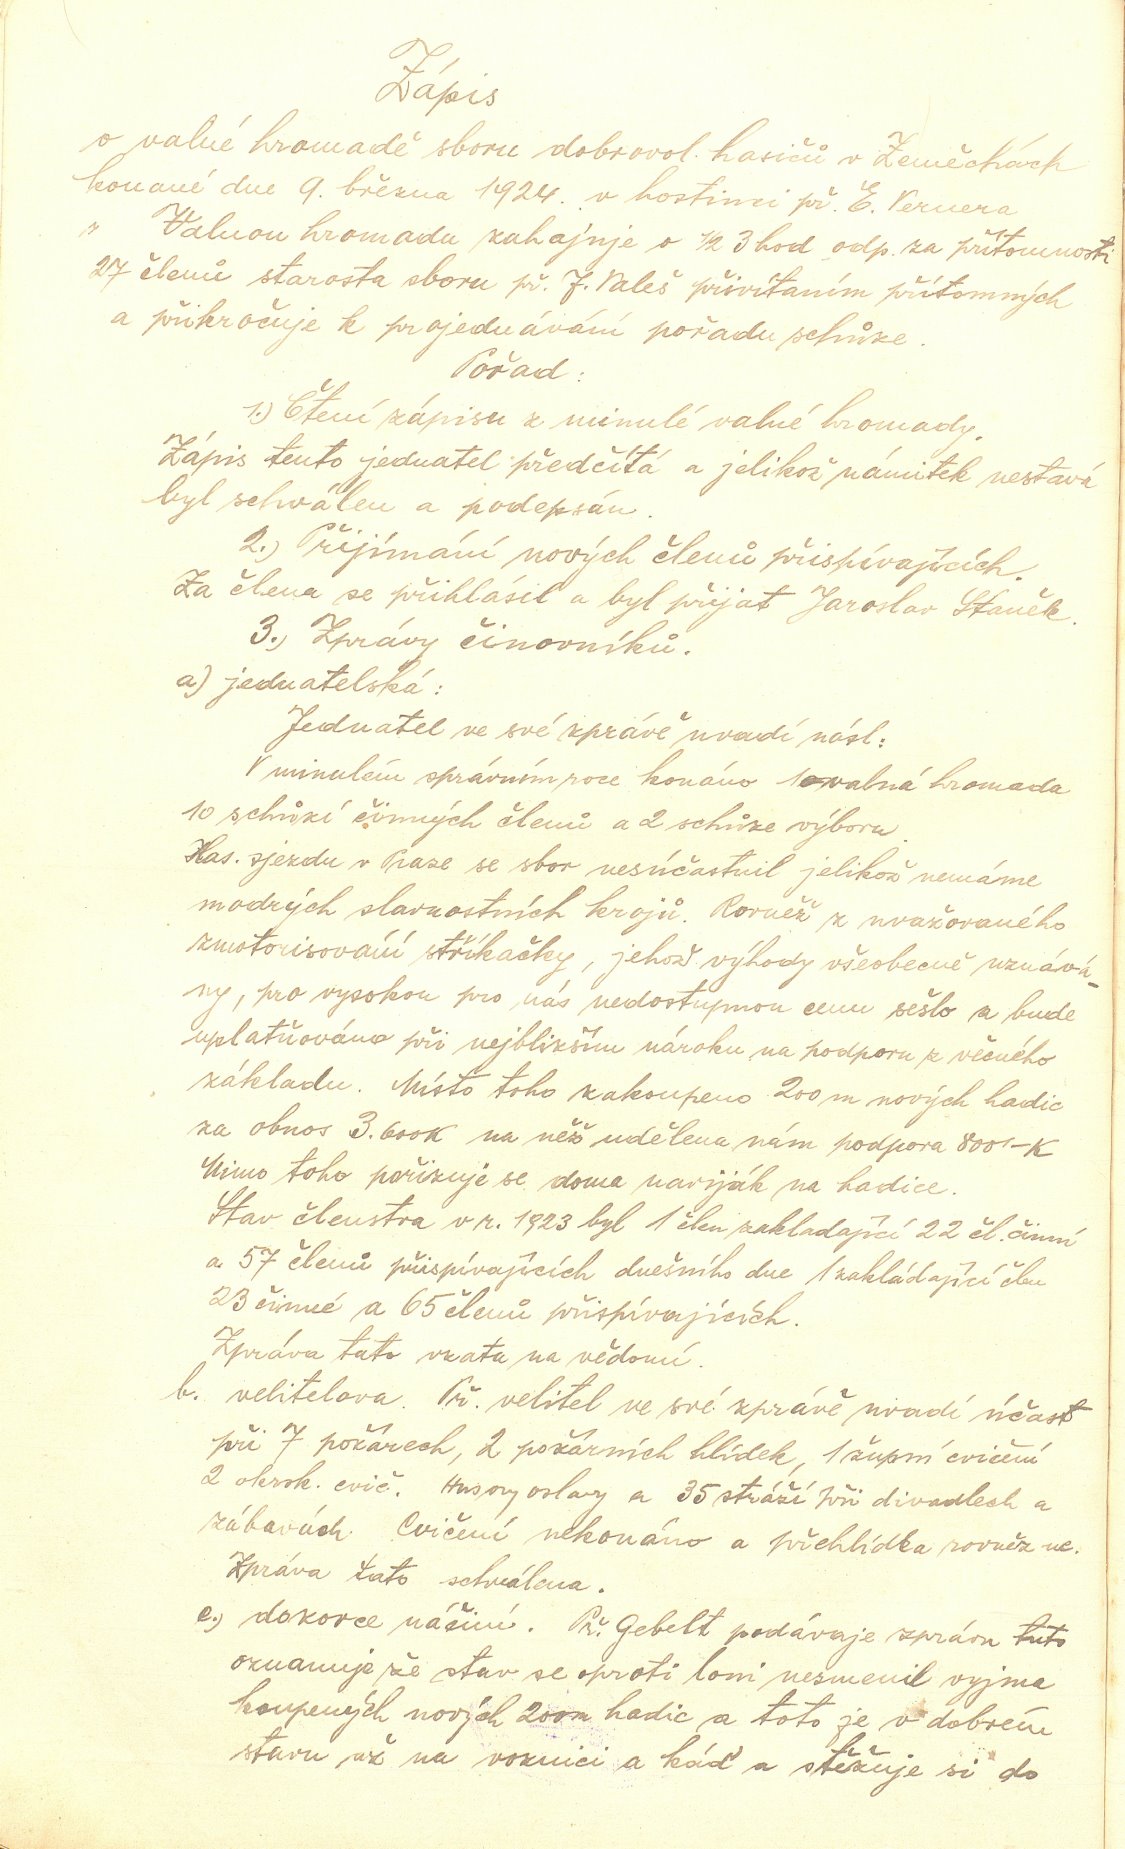 Zápis
o valné hromadě sboru dobrovol. hasičů v Zeměchách
konané dne 9. března 1924. v hostinci př. E. Vernera
Valnou hromadu zahajuje o 1/2 3 hod odp. za přítomnosti
27 členů starosta sboru př. J. Valeš přivítaním přítomných
a přikročuje k projednávání pořadu schůze.
Pořad:
1.) Čtení zápisu z minulé valné hromady.
Zápis tento jednatel předčítá a jelikož námitek nestává
byl schválen a podepsán.
2.) Přijímání nových členů přispívajících.
Za člena se přihlásil a byl přijat Jaroslav Staněk.
3.) Zprávy činovníků.
a) jednatelská:
Jednatel ve své zprávě uvadí násl:
V minulém správním roce konáno 1 valná hromada
10 schůzí činných členů a 2 schůze výboru.
Has. sjezdu v Praze se sbor nesúčastnil jelikož nemáme
modrých slavnostních krojů. Rovněž z uvažovaného
zmotorisování stříkačky, jehož výhody všeobecně uznává-
ny, pro vysokou pro nás nedostupnou cenu sešlo a bude
uplatňováno při nejbližším nároku na podporu z věcného
základu. Místo toho zakoupeno 200 m nových hadic
za obnos 3.600K na něž udělena nám podpora 800'-K
Mimo toho pořizuje se doma naviják na hadice.
Stav členstva v r. 1923 byl 1 člen zakladající 22 čl. činní
a 57 členů přispívajících dnešního dne 1 zakládající člen
23 činné a 65 členů přispívajících.
Zpráva tato vzata na vědomí.
b. velitelova. Př. velitel ve své zprávě uvadí účast
při 7 požárech, 2 požárních hlídek, 1 župní cvičení
2 okrsk. cvič. Husovy oslavy a 35 stráží při divadlech a
zábavách. Cvičení nekonáno a přehlídka rovněž ne.
Zpráva tato schválena.
c.) dozorce náčiní. Př. Gebelt podávaje zprávu tuto
oznamuje že stav se oproti loni nesmenil vyjma
koupených nových 200m hadic a toto je v dobrém
stavu až na voznici a káď a stěžuje si do